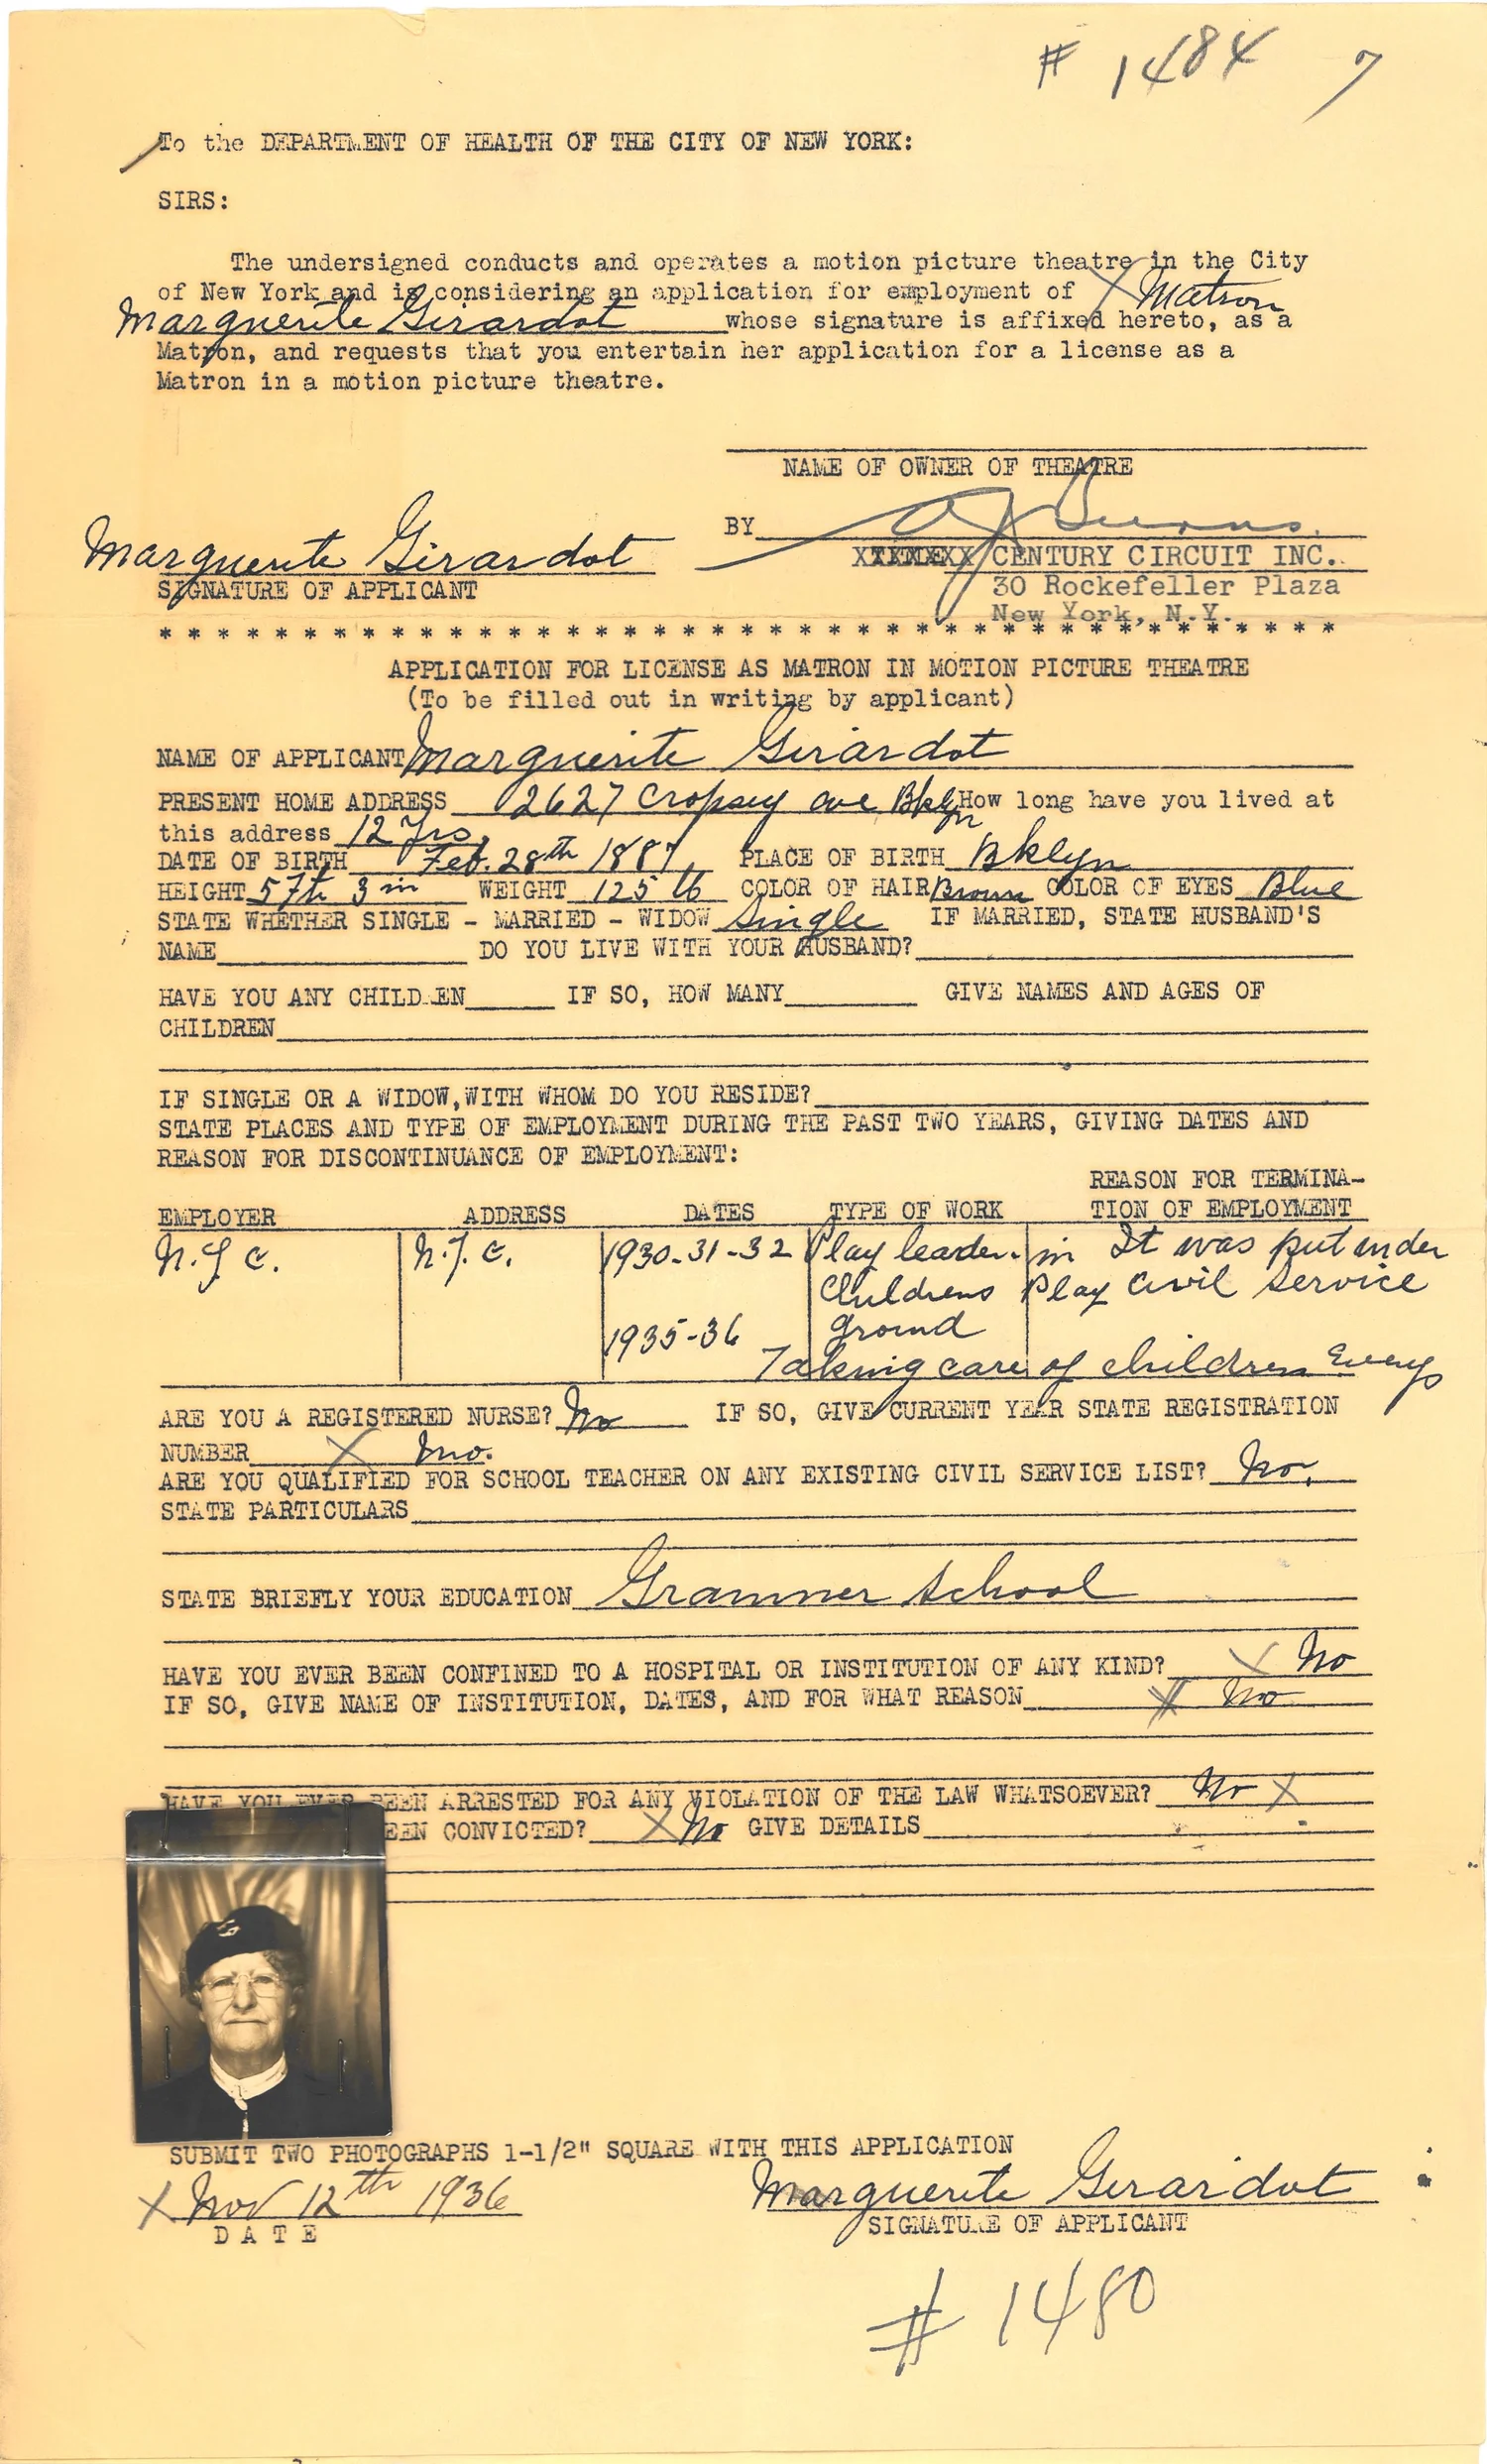 # 1484 7
To the DEPARTMENT OF HEALTH OF THE CITY OF NEW YORK:
SIRS:
The undersigned conducts and operates a motion picture theatre in the City
of New York and is considering an application for employment of X Matron
Marguerite Girardot whose signature is affixed hereto, as a
Matron, and requests that you entertain her application for a license as a
Matron in a motion picture theatre.
NAME OF OWNER OF THEATRE
BY
Marguerite Girardot
CENTURY CIRCUIT INC.
SIGNATURE OF APPLICANT
30 Rockefeller Plaza
New York, N.Y.
* * * * * * * * * * * * * * * * * * * * * * * * * * * * * * * * * * * * * * * * *
APPLICATION FOR LICENSE AS MATRON IN MOTION PICTURE THEATRE
(To be filled out in writing by applicant)
NAME OF APPLICANT Marguerite Girardot
PRESENT HOME ADDRESS 2627 Cropsey ave Bklyn How long have you lived at
this address 12 Yrs.
DATE OF BIRTH Feb. 28th 1887 PLACE OF BIRTH Bklyn
HEIGHT 5 ft 3 in WEIGHT 125 lb COLOR OF HAIR Brown COLOR OF EYES Blue
STATE WHETHER SINGLE - MARRIED - WIDOW Single IF MARRIED, STATE HUSBAND'S
NAME DO YOU LIVE WITH YOUR HUSBAND?
HAVE YOU ANY CHILDREN IF SO, HOW MANY GIVE NAMES AND AGES OF
CHILDREN
IF SINGLE OR A WIDOW, WITH WHOM DO YOU RESIDE?
STATE PLACES AND TYPE OF EMPLOYMENT DURING THE PAST TWO YEARS, GIVING DATES AND
REASON FOR DISCONTINUANCE OF EMPLOYMENT:
REASON FOR TERMINA-
EMPLOYER ADDRESS DATES TYPE OF WORK TION OF EMPLOYMENT
N.Y.C. N.Y.C. 1930-31-32 Play leader in It was put under
Childrens Play Civil Service
1935-36 ground
Taking care of children Evenys
ARE YOU A REGISTERED NURSE? No IF SO, GIVE CURRENT YEAR STATE REGISTRATION
NUMBER X no.
ARE YOU QUALIFIED FOR SCHOOL TEACHER ON ANY EXISTING CIVIL SERVICE LIST? No.
STATE PARTICULARS
STATE BRIEFLY YOUR EDUCATION Grammer School
HAVE YOU EVER BEEN CONFINED TO A HOSPITAL OR INSTITUTION OF ANY KIND? X No
IF SO, GIVE NAME OF INSTITUTION, DATES, AND FOR WHAT REASON X No
HAVE YOU EVER BEEN ARRESTED FOR ANY VIOLATION OF THE LAW WHATSOEVER? No X
EEN CONVICTED? X No GIVE DETAILS
SUBMIT TWO PHOTOGRAPHS 1-1/2" SQUARE WITH THIS APPLICATION
X Nov 12th 1936 Marguerite Girardot
DATE SIGNATURE OF APPLICANT
# 1480